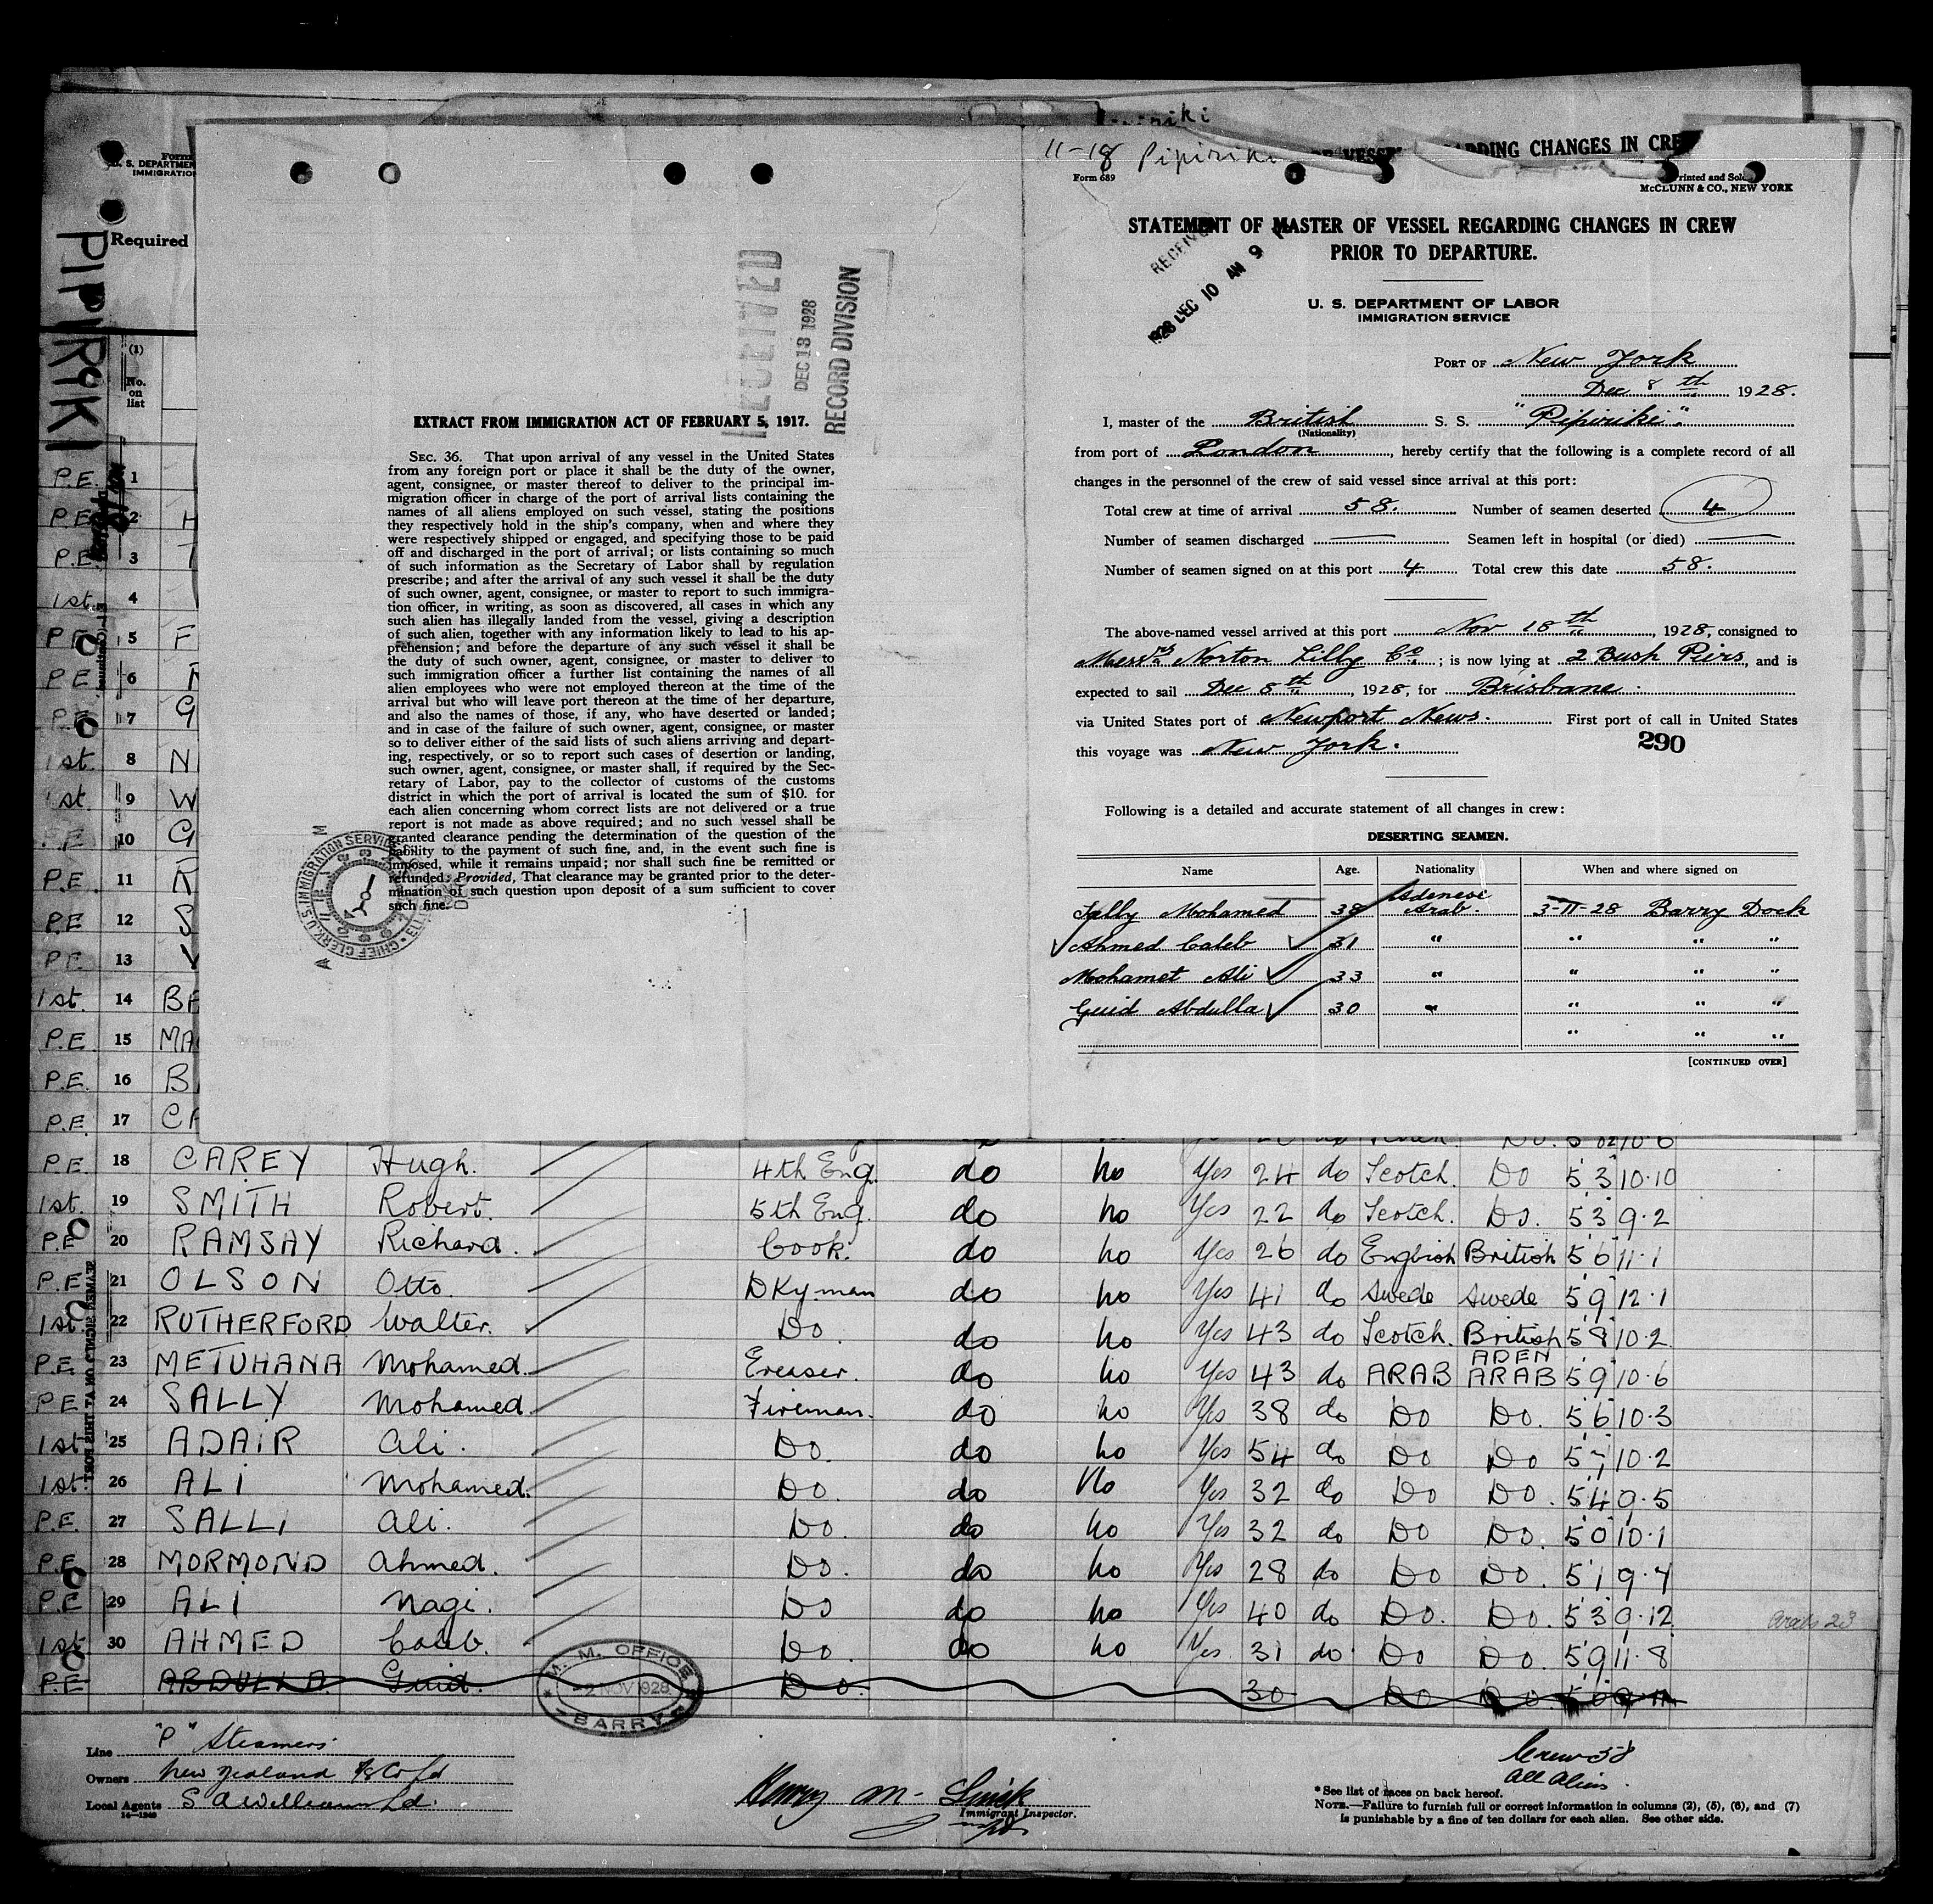 11-18 Pipiriki
OF VESSEL REGARDING CHANGES IN CREW
Form 689
Printed and Sold
McCLUNN & CO., NEW YORK
STATEMENT OF MASTER OF VESSEL REGARDING CHANGES IN CREW
PRIOR TO DEPARTURE.
RECEIVED
1928 DEC 10 AM 9
U. S. DEPARTMENT OF LABOR
IMMIGRATION SERVICE
PORT OF New York
Dec 8th 1928.
I, master of the British S. S. "Pipiriki"
(Nationality)
from port of London, hereby certify that the following is a complete record of all
changes in the personnel of the crew of said vessel since arrival at this port:
Total crew at time of arrival 58. Number of seamen deserted 4
Number of seamen discharged — Seamen left in hospital (or died) —
Number of seamen signed on at this port 4 Total crew this date 58.
The above-named vessel arrived at this port Nov 18th, 1928, consigned to
Messrs Norton Lilly Co.; is now lying at 2 Bush Piers, and is
expected to sail Dec 8th, 1928, for Brisbane.
via United States port of Newport News. First port of call in United States
this voyage was New York.
290
Following is a detailed and accurate statement of all changes in crew:
DESERTING SEAMEN.
Name Age. Nationality When and where signed on
Sally Mohamed 38 Adenese Arab. 3-11-28 Barry Dock
Ahmed Caleb 31 " " " "
Mohamet Ali 33 " " " "
Guid Abdulla 30 " " " "
" " "
[CONTINUED OVER]
RECEIVED
DEC 13 1928
RECORD DIVISION
EXTRACT FROM IMMIGRATION ACT OF FEBRUARY 5, 1917.
SEC. 36. That upon arrival of any vessel in the United States
from any foreign port or place it shall be the duty of the owner,
agent, consignee, or master thereof to deliver to the principal im-
migration officer in charge of the port of arrival lists containing the
names of all aliens employed on such vessel, stating the positions
they respectively hold in the ship's company, when and where they
were respectively shipped or engaged, and specifying those to be paid
off and discharged in the port of arrival; or lists containing so much
of such information as the Secretary of Labor shall by regulation
prescribe; and after the arrival of any such vessel it shall be the duty
of such owner, agent, consignee, or master to report to such immigra-
tion officer, in writing, as soon as discovered, all cases in which any
such alien has illegally landed from the vessel, giving a description
of such alien, together with any information likely to lead to his ap-
prehension; and before the departure of any such vessel it shall be
the duty of such owner, agent, consignee, or master to deliver to
such immigration officer a further list containing the names of all
alien employees who were not employed thereon at the time of the
arrival but who will leave port thereon at the time of her departure,
and also the names of those, if any, who have deserted or landed;
and in case of the failure of such owner, agent, consignee, or master
so to deliver either of the said lists of such aliens arriving and depart-
ing, respectively, or so to report such cases of desertion or landing,
such owner, agent, consignee, or master shall, if required by the Sec-
retary of Labor, pay to the collector of customs of the customs
district in which the port of arrival is located the sum of $10. for
each alien concerning whom correct lists are not delivered or a true
report is not made as above required; and no such vessel shall be
granted clearance pending the determination of the question of the
liability to the payment of such fine, and, in the event such fine is
imposed, while it remains unpaid; nor shall such fine be remitted or
refunded: Provided, That clearance may be granted prior to the deter-
mination of such question upon deposit of a sum sufficient to cover
such fine.
U.S. IMMIGRATION SERVICE
CHIEF CLERK
Form
U. S. DEPARTMEN
IMMIGRATIO
Required
PIPIRIKI
(1)
No.
on
list
P.E. 1
P.E. 2 H
P.E. 3 T
1st. 4
P.E. 5 F
P.E. 6
P.E. 7 G
1st. 8 N
1st. 9 W
P.E. 10 G
P.E. 11 R
P.E. 12 S
P.E. 13 V
1st. 14 BE
P.E. 15 MA
P.E. 16 B
P.E. 17 CA
P.E. 18 CAREY Hugh. 4th Eng. do no Yes 24 do Scotch. Do 5 3 10·10
1st. 19 SMITH Robert. 5th Eng. do no Yes 22 do Scotch. Do. 5 3 9·2
P.E. 20 RAMSAY Richard. Cook. do no Yes 26 do English British 5 6 11·1
P.E. 21 OLSON Otto. DKyman do no Yes 41 do Swede Swede 5 9 12·1
1st. 22 RUTHERFORD Walter. Do. do no Yes 43 do Scotch. British 5 8 10·2
P.E. 23 METUHANA Mohamed. Greaser. do no Yes 43 do ARAB ADEN ARAB 5 9 10·6
P.E. 24 SALLY Mohamed. Fireman. do no Yes 38 do Do Do. 5 6 10·3
1st. 25 ADAIR Ali. Do. do no Yes 54 do Do Do 5 7 10·2
1st. 26 ALI Mohamed. Do. do No Yes 32 do Do Do. 5 4 9·5
P.E. 27 SALLI Ali. Do. do no Yes 32 do Do Do. 5 0 10·1
P.E. 28 MORMOND Ahmed. Do. do no Yes 28 do Do Do. 5 1 9·4
P.E. 29 ALI Nagi. Do do no Yes 40 do Do. Do. 5 3 9·12
Arabs 23
1st. 30 AHMED Caleb. Do. do no Yes 31 do Do Do. 5 9 11·8
P.E ABDULLA Guid. Do. 30 Do Do.
M. M. OFFICE
2 NOV 1928
BARRY
Line "P" Steamers
Owners New Zealand S/S Co Ld
Local Agents S A Williams Ld.
14—1240
Henry M.
Immigrant Inspector.
Crew 58
all aliens.
*See list of races on back hereof.
NOTE.—Failure to furnish full or correct information in columns (2), (5), (6), and (7)
is punishable by a fine of ten dollars for each alien. See other side.